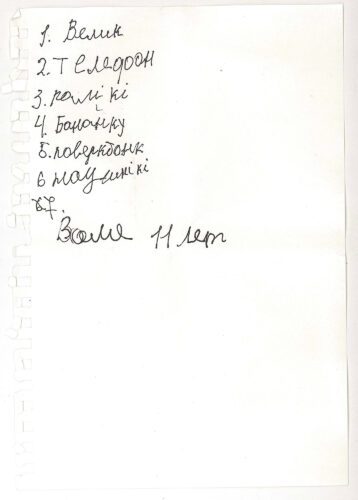 1. Велик
2. Теледоон
3. ралікі
4. Бананку
5. поверкбонк
6 наушнікі
7.
Вале 11 лет